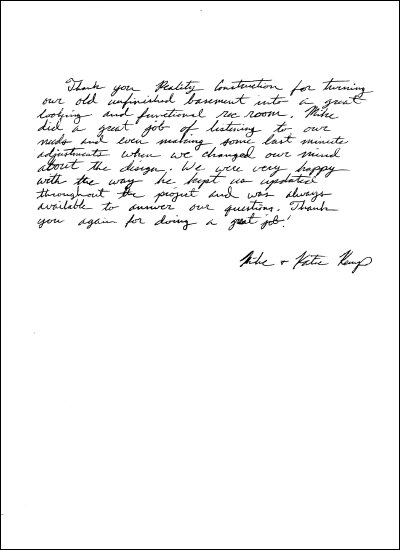 Thank you Reality Construction for turning
our old unfinished basement into a great
looking and functional rec room. Mike
did a great job of listening to our
needs and even making some last minute
adjustments when we changed our mind
about the design. We were very happy
with the way he kept us updated
throughout the project and was always
available to answer our questions. Thank
you again for doing a great job!
Mike + Katie Kemp